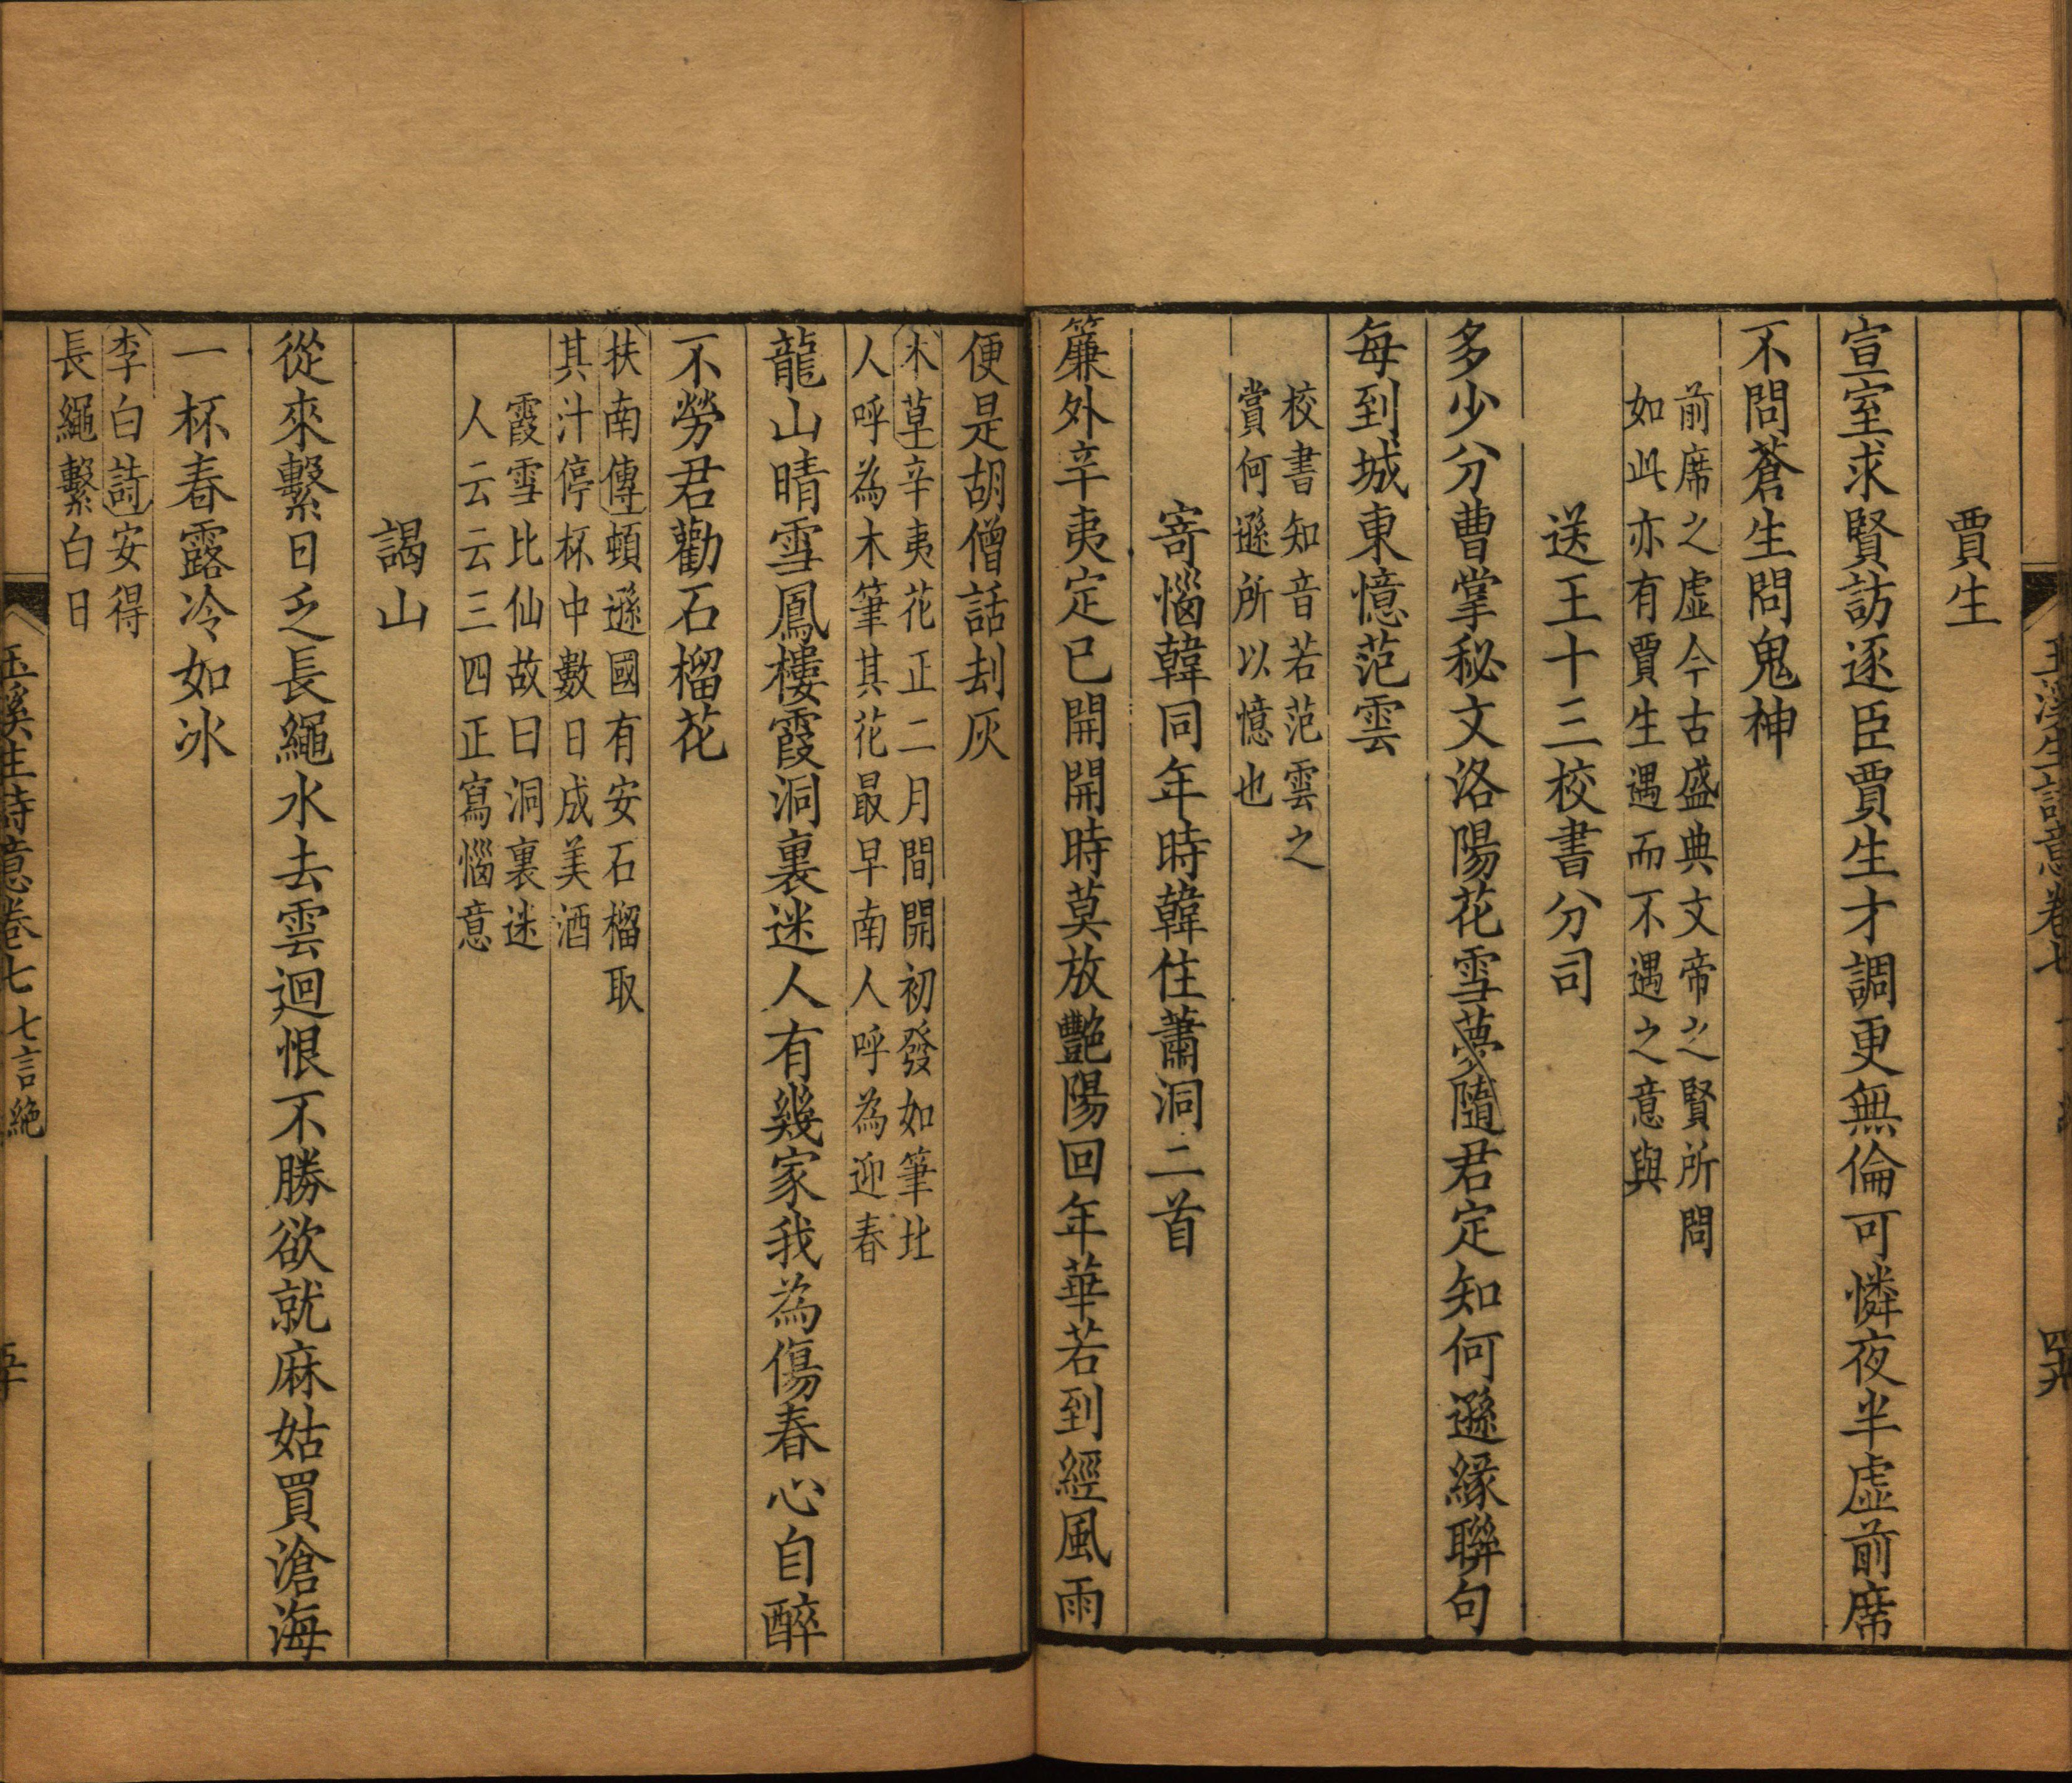 賈生
宣室求賢訪逐臣賈生才調更無倫可憐夜半虛前席
不問蒼生問鬼神
前席之虛今古盛典文帝之賢所問
如此亦有賈生遇而不遇之意與
送王十三校書分司
多少分曹掌秘文洛陽花雪夢隨君定知何遜緣聯句
每到城東憶范雲
校書知音若范雲之
賞何遜所以憶也
寄惱韓同年時韓住蕭洞二首
簾外辛夷定已開開時莫放艷陽回年華若到經風雨
便是胡僧話刦灰
本草辛夷花正二月間開初發如筆北
人呼為木筆其花最早南人呼為迎春
龍山晴雪鳳樓霞洞裏迷人有幾家我為傷春心自醉
不勞君勸石榴花
扶南傳頓遜國有安石榴取
其汁停杯中數日成美酒
霞雪比仙故曰洞裏迷
人云云三四正寫惱意
謁山
從來繫日乏長繩水去雲迴恨不勝欲就麻姑買滄海
一杯春露冷如冰
李白詩安得
長繩繫白日
玉溪生詩意卷七 七言絶
五十